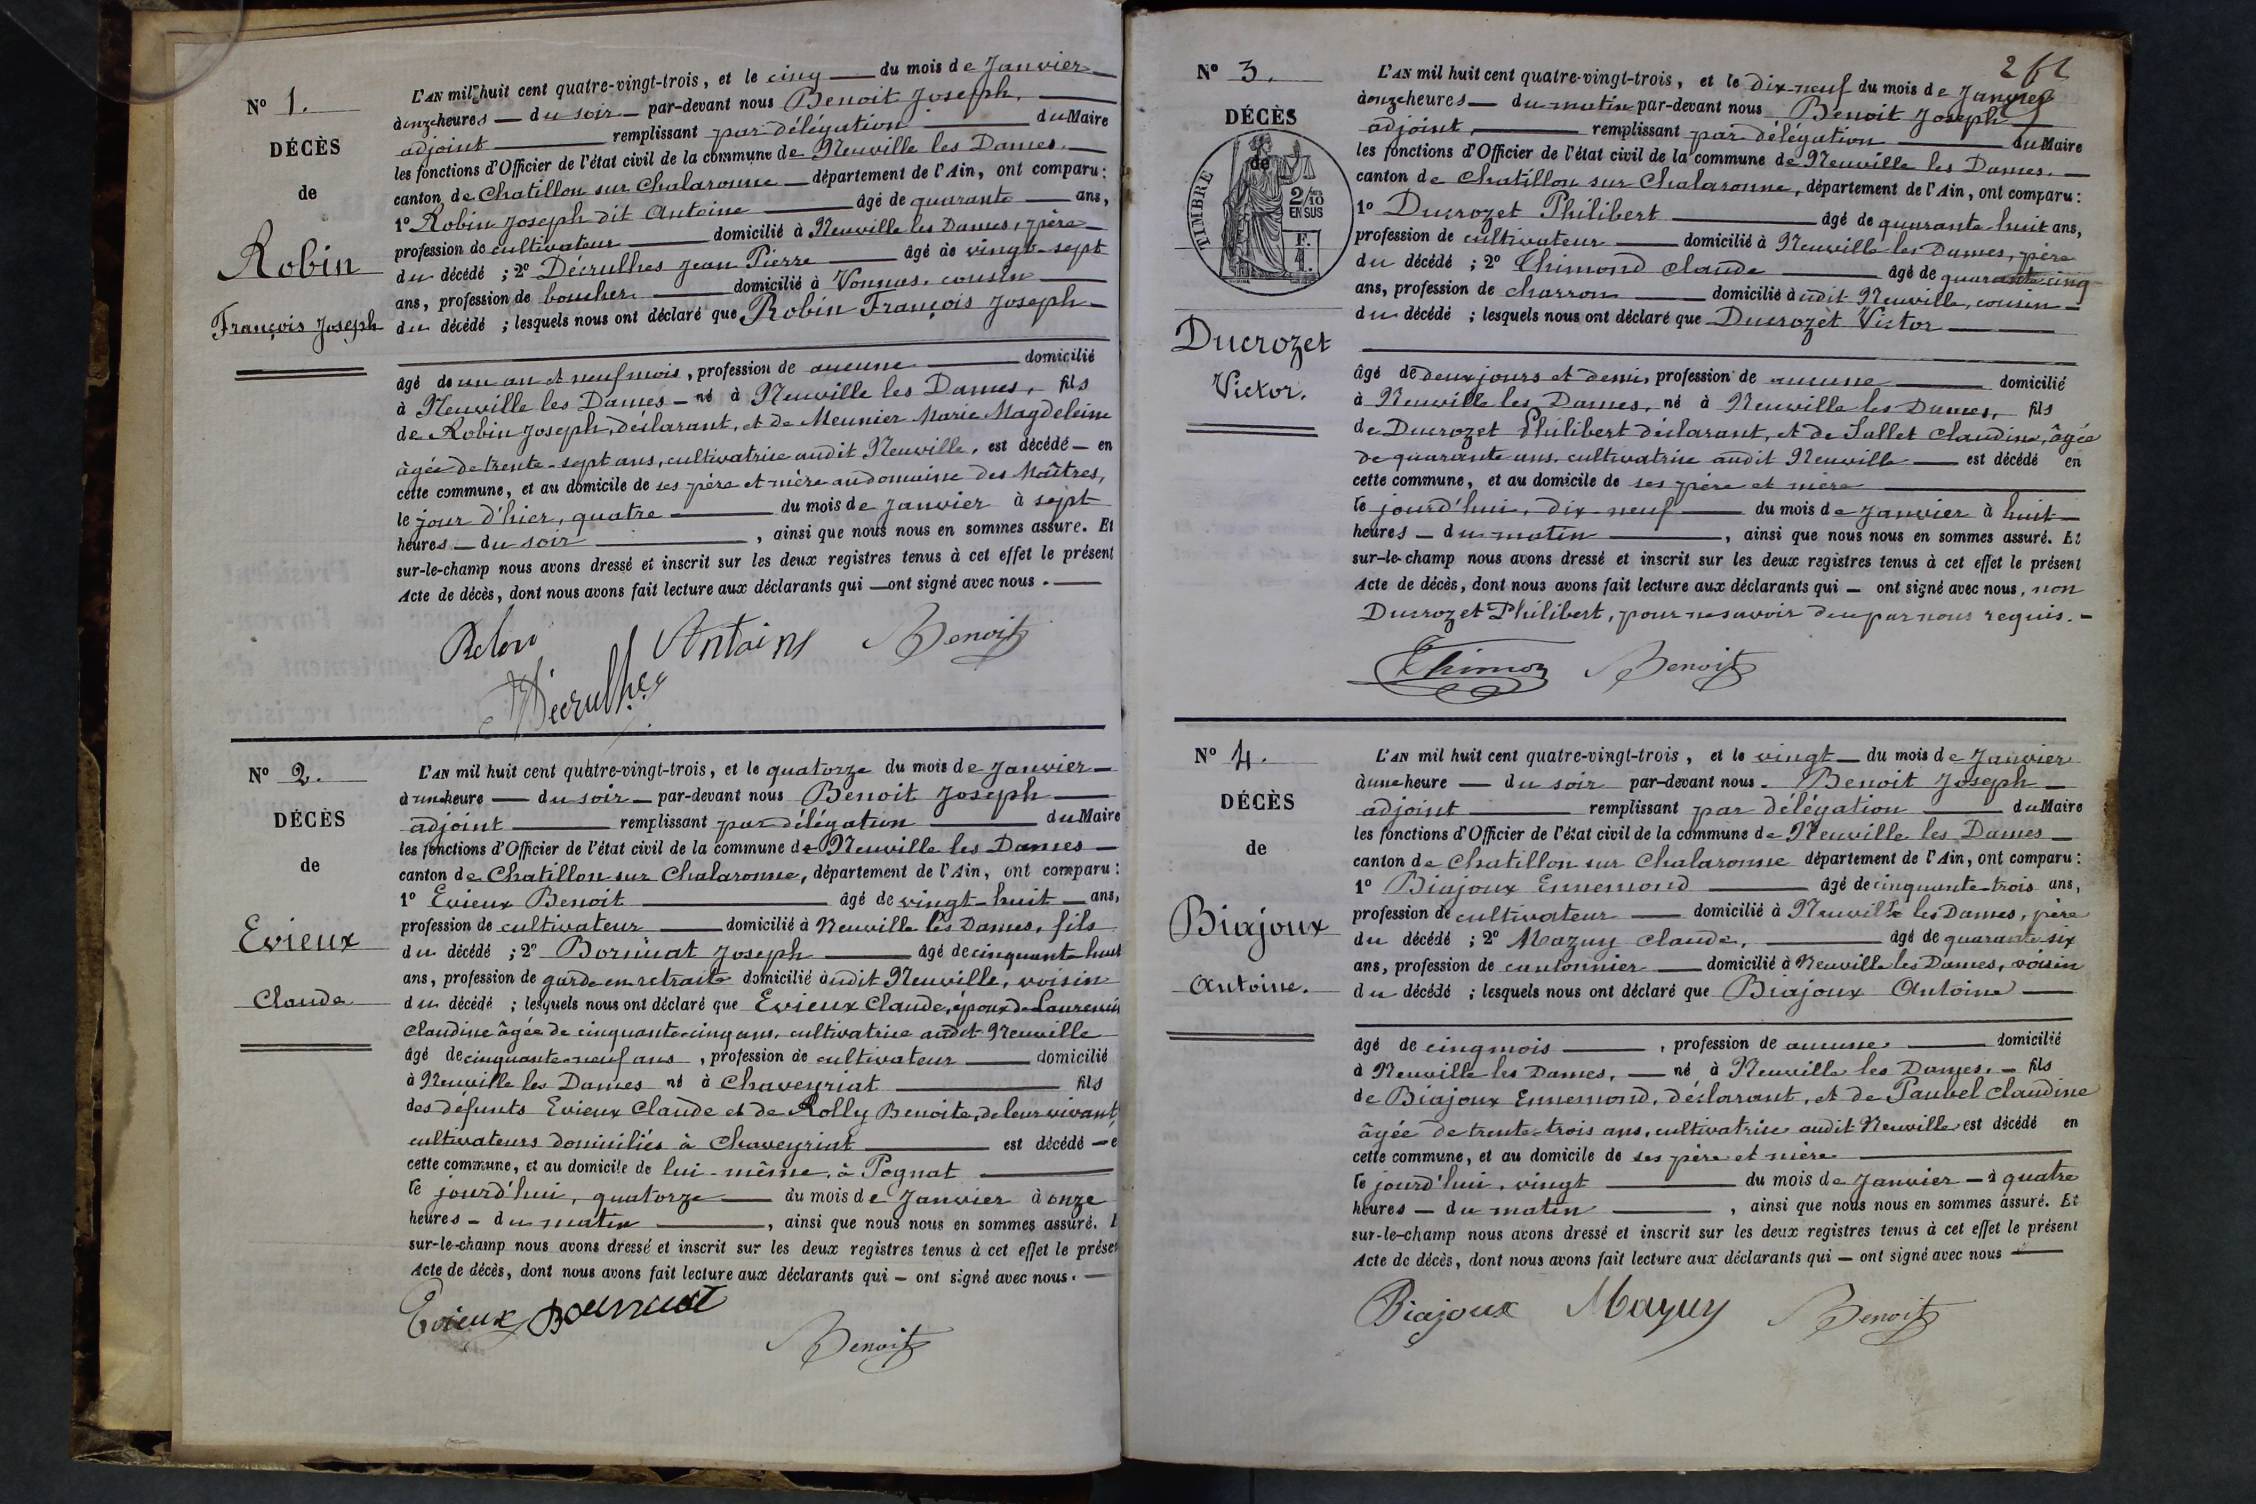 N° 1.
DÉCÈS
de
Robin
François Joseph
L'AN mil huit cent quatre-vingt-trois, et le cinq du mois de Janvier
à onze heures du soir par-devant nous Benoit Joseph,
adjoint remplissant par délégation du Maire
les fonctions d'Officier de l'état civil de la commune de Neuville les Dames.
canton de Chatillon sur Chalaronne département de l'Ain, ont comparu :
1° Robin Joseph dit Antoine âgé de quarante ans,
profession de cultivateur domicilié à Neuville les Dames, père
du décédé ; 2° Décrulhes Jean Pierre âgé de vingt-sept
ans, profession de boucher domicilié à Vonnas, cousin
du décédé ; lesquels nous ont déclaré que Robin François Joseph
âgé de un an et neuf mois, profession de aucune domicilié
à Neuville les Dames né à Neuville les Dames, fils
de Robin Joseph, déclarant, et de Meunier Marie Magdeleine
âgée de trente-sept ans, cultivatrice audit Neuville, est décédé en
cette commune, et au domicile de ses père et mère au domaine des Maîtres,
le jour d'hier, quatre du mois de Janvier à sept
heures du soir, ainsi que nous nous en sommes assuré. Et
sur-le-champ nous avons dressé et inscrit sur les deux registres tenus à cet effet le présent
Acte de décès, dont nous avons fait lecture aux déclarants qui ont signé avec nous.
Antoine Benoit
Décrulhes
N° 2.
DÉCÈS
de
Evieux
Claude
L'AN mil huit cent quatre-vingt-trois, et le quatorze du mois de Janvier
à une heure du soir par-devant nous Benoit Joseph
adjoint remplissant par délégation du Maire
les fonctions d'Officier de l'état civil de la commune de Neuville les Dames
canton de Chatillon sur Chalaronne, département de l'Ain, ont comparu :
1° Evieux Benoit âgé de vingt-huit ans,
profession de cultivateur domicilié à Neuville les Dames, fils
du décédé ; 2° Bornuat Joseph âgé de cinquante huit
ans, profession de garde en retraite domicilié audit Neuville, voisin
du décédé ; lesquels nous ont déclaré que Evieux Claude, époux de
Claudine âgée de cinquante-cinq ans, cultivatrice audit Neuville
âgé de cinquante-neuf ans, profession de cultivateur domicilié
à Neuville les Dames né à Chaveyriat fils
des défunts Evieux Claude et de Rolly Benoite, de leur vivant
cultivateurs domiciliés à Chaveyriat est décédé e
cette commune, et au domicile de lui-même, à Pognat
le jourd'hui, quatorze du mois de Janvier à onze
heures du matin, ainsi que nous nous en sommes assuré. E
sur-le-champ nous avons dressé et inscrit sur les deux registres tenus à cet effet le présen
Acte de décès, dont nous avons fait lecture aux déclarants qui ont signé avec nous.
Evieux Bornuat
Benoit
2
N° 3.
DÉCÈS
de
TIMBRE
2/10 EN SUS
F.
Ducrozet
Victor.
L'AN mil huit cent quatre-vingt-trois, et le dix-neuf du mois de Janvier
à onze heures du matin par-devant nous Benoit Joseph
adjoint, remplissant par délégation du Maire
les fonctions d'Officier de l'état civil de la commune de Neuville les Dames.
canton de Chatillon sur Chalaronne, département de l'Ain, ont comparu :
1° Ducrozet Philibert âgé de quarante huit ans,
profession de cultivateur domicilié à Neuville les Dames, père
du décédé ; 2° Thimond Claude âgé de quarante cinq
ans, profession de charron domicilié audit Neuville, cousin
du décédé ; lesquels nous ont déclaré que Ducrozet Victor
âgé de deux jours et demi, profession de aucune domicilié
à Neuville les Dames, né à Neuville les Dames, fils
de Ducrozet Philibert déclarant, et de Sallet Claudine, âgée
de quarante ans, cultivatrice audit Neuville est décédé en
cette commune, et au domicile de ses père et mère
le jourd'hui, dix-neuf du mois de Janvier à huit
heures du matin, ainsi que nous nous en sommes assuré. Et
sur-le-champ nous avons dressé et inscrit sur les deux registres tenus à cet effet le présent
Acte de décès, dont nous avons fait lecture aux déclarants qui ont signé avec nous, non
Ducrozet Philibert, pour ne savoir de ce par nous requis.
Thimon Benoit
N° 4.
DÉCÈS
de
Biajoux
Antoine.
L'AN mil huit cent quatre-vingt-trois, et le vingt du mois de Janvier
à une heure du soir par-devant nous Benoit Joseph
adjoint remplissant par délégation du Maire
les fonctions d'Officier de l'état civil de la commune de Neuville les Dames
canton de Chatillon sur Chalaronne département de l'Ain, ont comparu :
1° Biajoux Ennemond âgé de cinquante-trois ans,
profession de cultivateur domicilié à Neuville les Dames, père
du décédé ; 2° Mazuy Claude, âgé de quarante six
ans, profession de cantonnier domicilié à Neuville les Dames, voisin
du décédé ; lesquels nous ont déclaré que Biajoux Antoine
âgé de cinq mois, profession de aucune domicilié
à Neuville les Dames, né à Neuville les Dames. fils
de Biajoux Ennemond, déclarant, et de Paubel Claudine
âgée de trente-trois ans, cultivatrice audit Neuville est décédé en
cette commune, et au domicile de ses père et mère
le jourd'hui, vingt du mois de Janvier à quatre
heures du matin, ainsi que nous nous en sommes assuré. Et
sur-le-champ nous avons dressé et inscrit sur les deux registres tenus à cet effet le présent
Acte de décès, dont nous avons fait lecture aux déclarants qui ont signé avec nous
Biajoux Mazuy Benoit